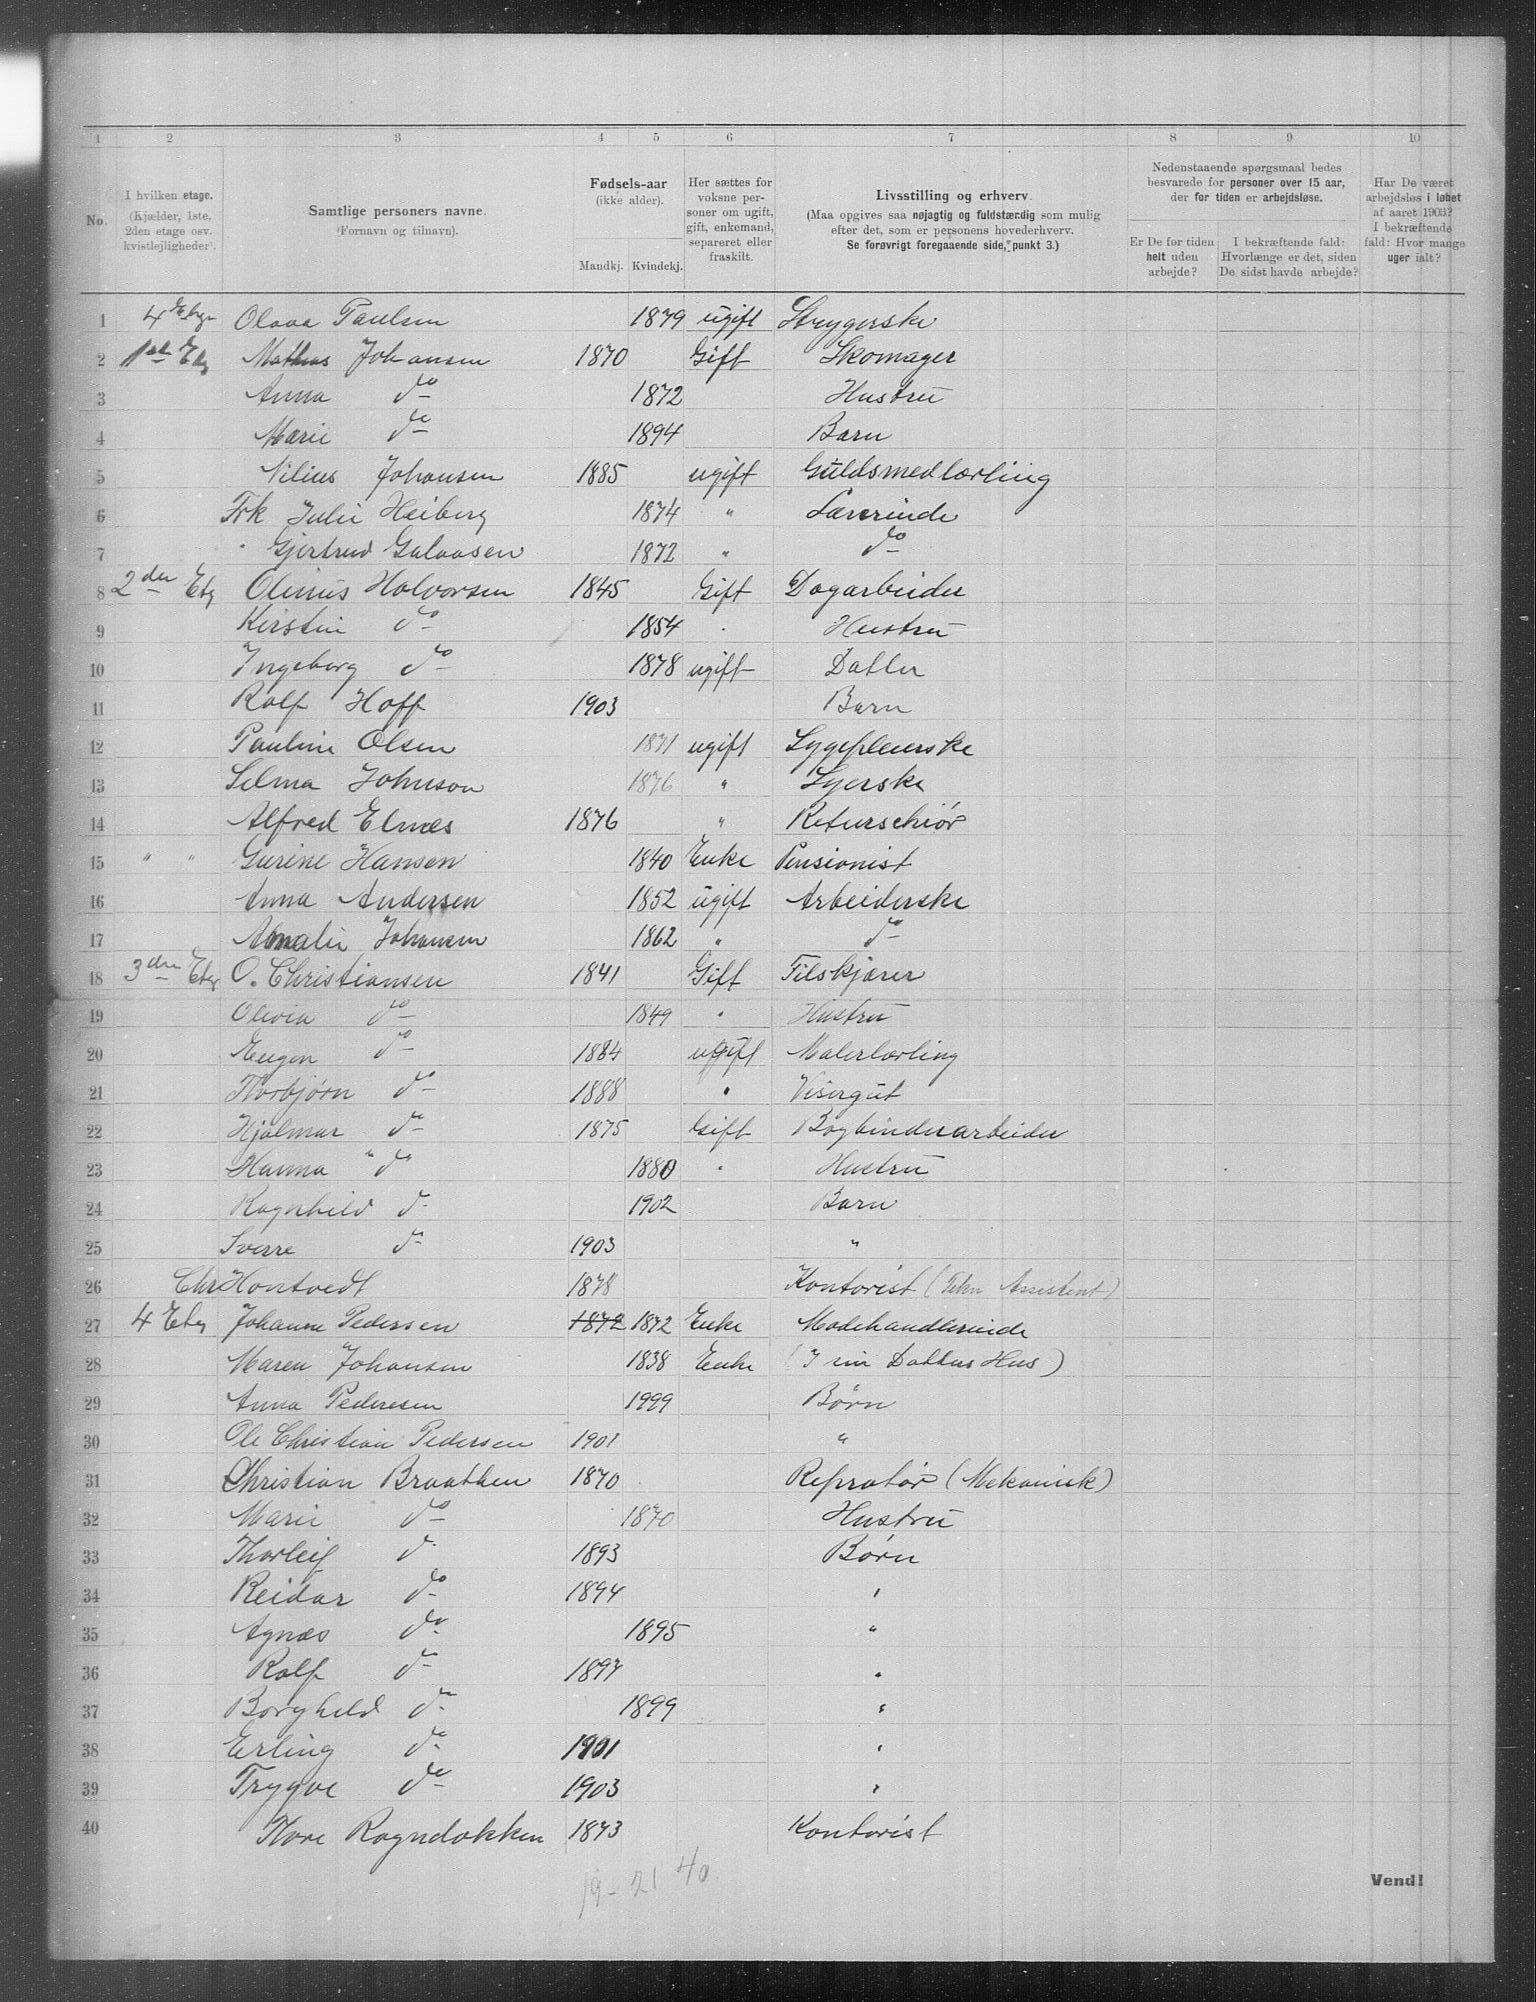 1 2 3 4 5 6 7 8 9 10
No. I hvilken etage. (Kjælder, 1ste, 2den etage osv. kvistlejligheder). Samtlige personers navne. (Fornavn og tilnavn). Fødsels-aar (ikke alder). Mandkj. Kvindekj. Her sættes for voksne personer om ugift, gift, enkemand, separeret eller fraskilt. Livsstilling og erhverv. (Maa opgives saa nøjagtig og fuldstændig som mulig efter det, som er personens hovederhverv. Se forøvrigt foregaaende side, punkt 3.) Nedenstaaende spørgsmaal bedes besvarede for personer over 15 aar, der for tiden er arbejdsløse. Er De for tiden helt uden arbejde? I bekræftende fald: Hvorlænge er det, siden De sidst havde arbejde? Har De været arbejdsløs i løbet af aaret 1903? I bekræftende fald: Hvor mange uger ialt?
1 4 Olava Paulsen 1879 ugift Strygerske
2 1ste Etg Mathias Johansen 1870 Gift Skomager
3 Anna do 1872 Hustru
4 Marie do 1894 Barn
5 Nilius Johansen 1885 ugift Guldsmedlærling
6 Frk Julie Heiberg 1874 " Lærerinde
7 " Gjertrud Galaasen 1872 " do
8 2den Etg Olinus Halvorsen 1845 Gift Dagarbeider
9 Kirstin do 1854 " Hustru
10 Ingeborg do 1878 ugift Datter
11 Rolf Hoff 1903 Barn
12 Pauline Olsen 1871 ugift Sygepleierske
13 Selma Johnson 1876 " Syerske
14 Alfred Elnæs 1876 " Returschiør
15 " " Gurine Hansen 1840 Enke Pensionist
16 Anna Andersen 1852 ugift Arbeiderske
17 Amalie Johansen 1862 " do
18 3die Etg O. Christiansen 1841 Gift Filskjærer
19 Olivia do 1849 " Hustru
20 Eugen do 1884 ugift Malerlærling
21 Thorbjørn do 1888 " Visergut
22 Hjalmar do 1875 Gift Bogbinderarbeider
23 Hanna " do 1880 " Hustru
24 Ragnhild do 1902 Barn
25 Sverre do 1903 "
26 Chr Hontvedt 1878 Kontorist (Tekn Assistent)
27 4 Etg Johanne Pedersen 1872 1872 Enke Modehandlerinde
28 Maren Johansen 1838 Enke (I sin Datters Hus)
29 Anna Pederesen 1999 Børn
30 Ole Christian Pedersen 1901 "
31 Christian Braathen 1870 Repratør (Mekanisk)
32 Marie do 1870 Hustru
33 Thorleif do 1893 Børn
34 Reidar do 1894 "
35 Agnæs do 1895 "
36 Rolf do 1897 "
37 Borghild do 1899 "
38 Erling do 1901 "
39 Trygve do 1903 "
40 Thore Rogndokken 1873 Kontorist
19 - 21 40
Vend!